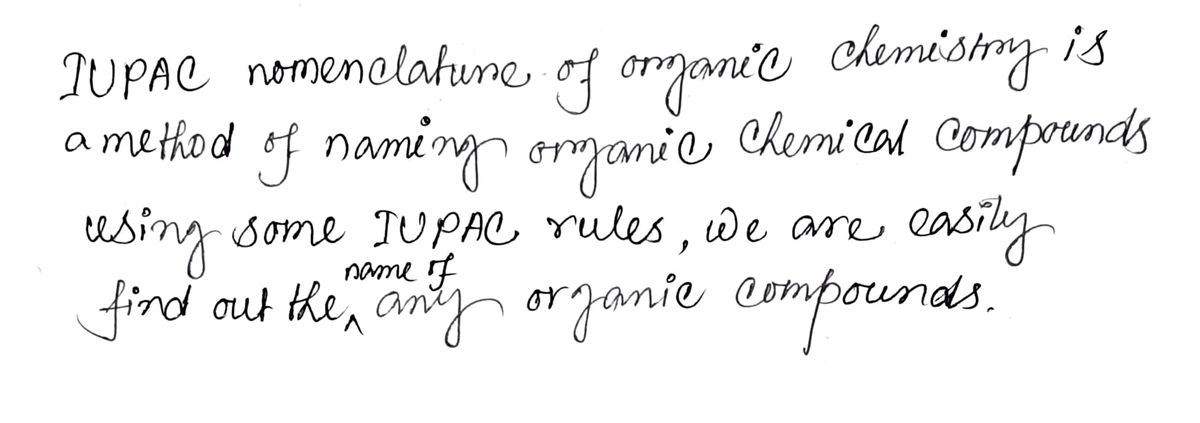 IUPAC nomenclature of organic chemistry is
a method of naming organic chemical compounds
using some IUPAC rules, we are easily
find out the name of any organic compounds.